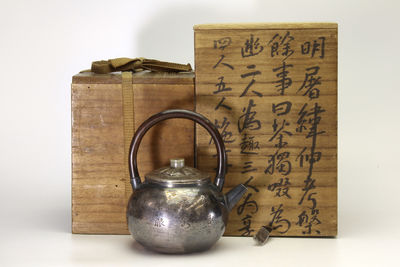 明屠緯仲考槃
餘事曰茶獨啜為
幽二人為趣三人為
四人五人